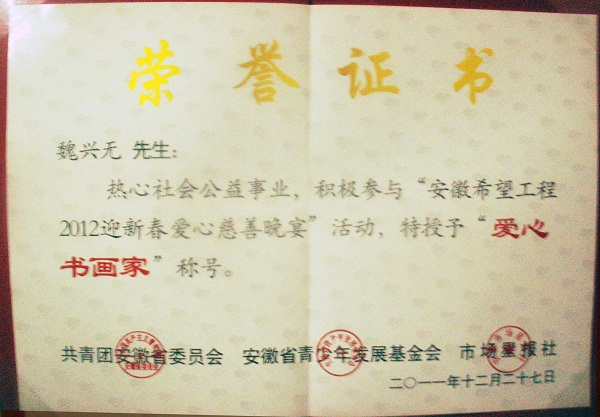 荣誉证书
魏兴无 先生：
热心社会公益事业，积极参与“安徽希望工程
2012迎新春爱心慈善晚宴”活动，特授予“爱心
书画家”称号。
共青团安徽省委员会 安徽省青少年发展基金会 市场星报社
二〇一一年十二月二十七日